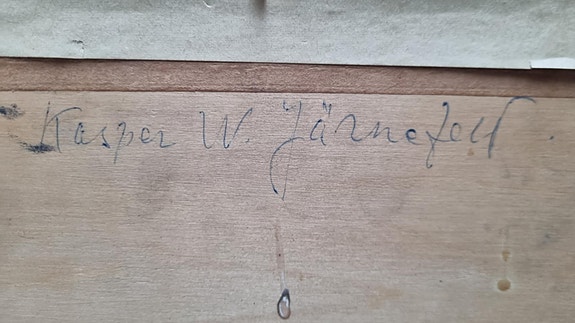 Kasper W. Järnefelt